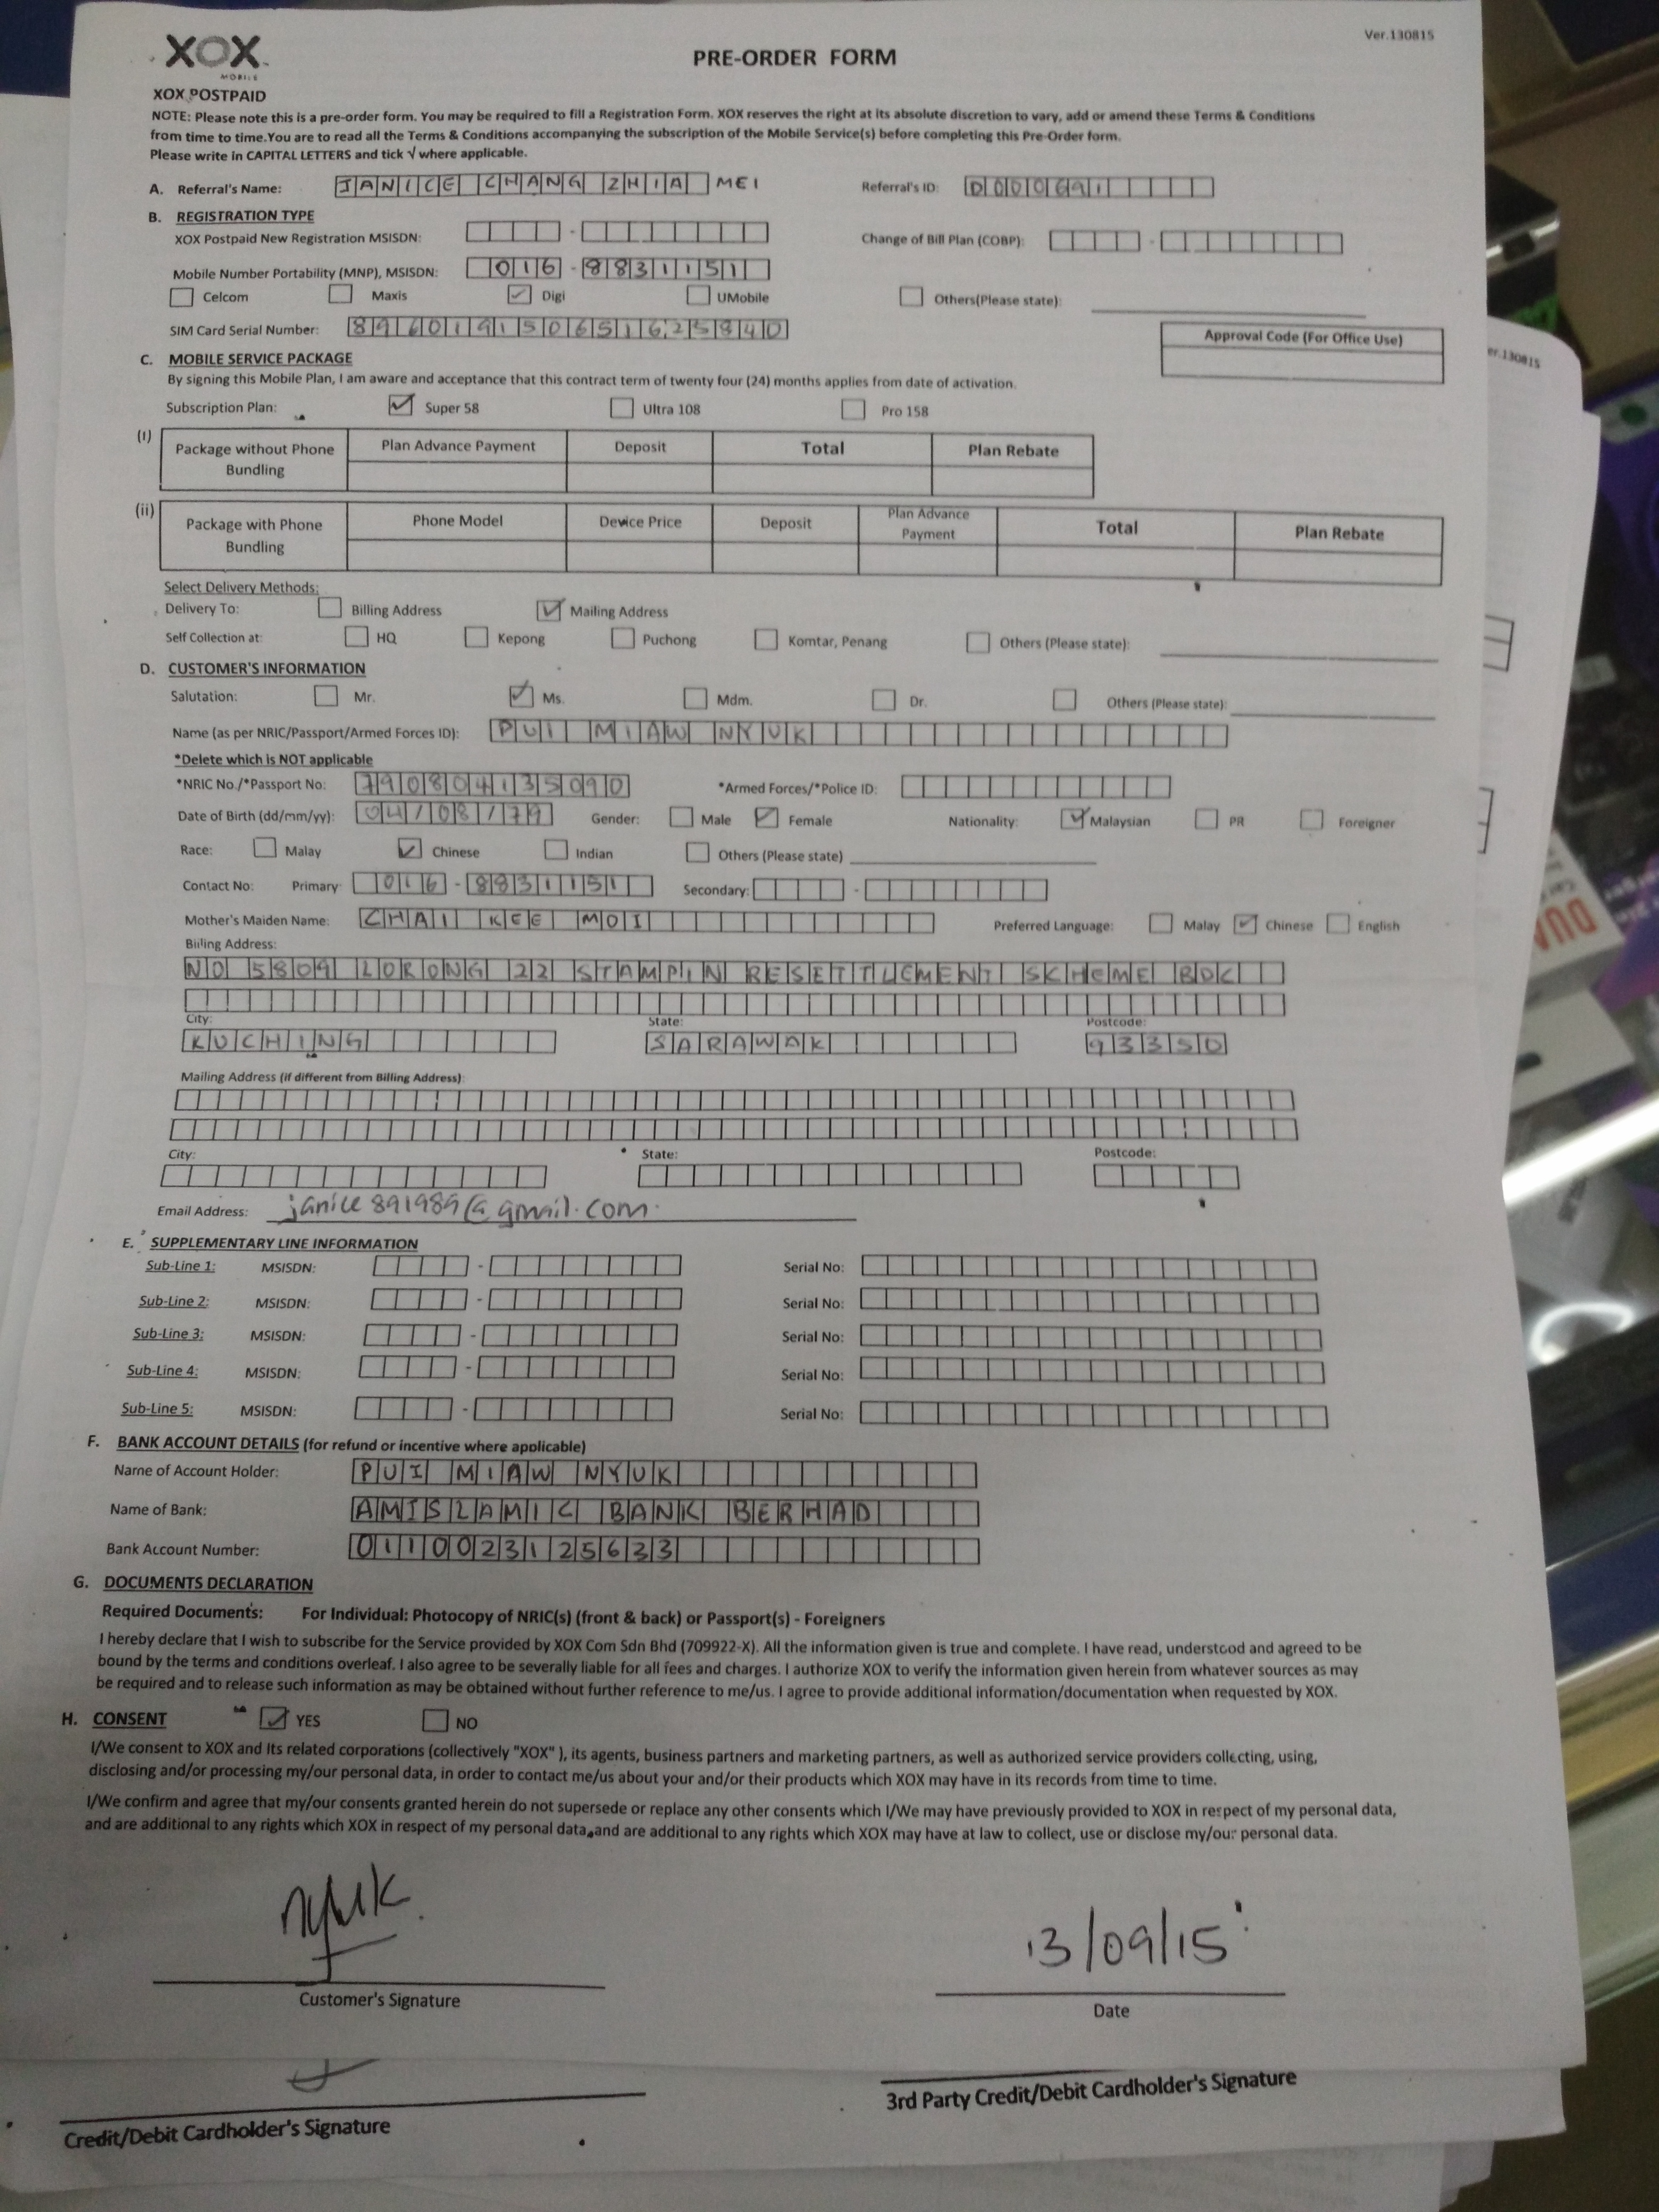 Ver.130815
XOX
MOBILE
PRE-ORDER FORM
XOX POSTPAID
NOTE: Please note this is a pre-order form. You may be required to fill a Registration Form. XOX reserves the right at its absolute discretion to vary, add or amend these Terms & Conditions
from time to time.You are to read all the Terms & Conditions accompanying the subscription of the Mobile Service(s) before completing this Pre-Order form.
Please write in CAPITAL LETTERS and tick √ where applicable.
A. Referral's Name: JANICE CHANG ZHIA MEI Referral's ID: D000691
B. REGISTRATION TYPE
XOX Postpaid New Registration MSISDN: - Change of Bill Plan (COBP): -
Mobile Number Portability (MNP), MSISDN: 016-8831151
Celcom Maxis ✓ Digi UMobile Others(Please state):
SIM Card Serial Number: 896019150651625840
Approval Code (For Office Use)
er.130815
C. MOBILE SERVICE PACKAGE
By signing this Mobile Plan, I am aware and acceptance that this contract term of twenty four (24) months applies from date of activation.
Subscription Plan: ✓ Super 58 Ultra 108 Pro 158
(i) Package without Phone Bundling Plan Advance Payment Deposit Total Plan Rebate
(ii) Package with Phone Bundling Phone Model Device Price Deposit Plan Advance Payment Total Plan Rebate
Select Delivery Methods:
Delivery To: Billing Address ✓ Mailing Address
Self Collection at: HQ Kepong Puchong Komtar, Penang Others (Please state):
D. CUSTOMER'S INFORMATION
Salutation: Mr. ✓ Ms. Mdm. Dr. Others (Please state):
Name (as per NRIC/Passport/Armed Forces ID): PUI MIAW NYUK
*Delete which is NOT applicable
*NRIC No./*Passport No: 790804135090 *Armed Forces/*Police ID:
Date of Birth (dd/mm/yy): 04/08/79 Gender: Male ✓ Female Nationality: ✓ Malaysian PR Foreigner
Race: Malay ✓ Chinese Indian Others (Please state)
Contact No: Primary: 016-8831151 Secondary: -
Mother's Maiden Name: CHAI KEE MOI Preferred Language: Malay ✓ Chinese English
Billing Address:
NO 5809 LORONG 22 STAMPIN RESETTLEMENT SKHEME BDC
City: State: Postcode:
KUCHING SARAWAK 93350
Mailing Address (if different from Billing Address):
City: State: Postcode:
Email Address: janice891989@gmail.com.
E. SUPPLEMENTARY LINE INFORMATION
Sub-Line 1: MSISDN: - Serial No:
Sub-Line 2: MSISDN: - Serial No:
Sub-Line 3: MSISDN: - Serial No:
Sub-Line 4: MSISDN: - Serial No:
Sub-Line 5: MSISDN: - Serial No:
F. BANK ACCOUNT DETAILS (for refund or incentive where applicable)
Name of Account Holder: PUI MIAW NYUK
Name of Bank: AMISLAMIC BANK BERHAD
Bank Account Number: 0110023125633
G. DOCUMENTS DECLARATION
Required Documents: For Individual: Photocopy of NRIC(s) (front & back) or Passport(s) - Foreigners
I hereby declare that I wish to subscribe for the Service provided by XOX Com Sdn Bhd (709922-X). All the information given is true and complete. I have read, understood and agreed to be
bound by the terms and conditions overleaf. I also agree to be severally liable for all fees and charges. I authorize XOX to verify the information given herein from whatever sources as may
be required and to release such information as may be obtained without further reference to me/us. I agree to provide additional information/documentation when requested by XOX.
H. CONSENT ✓ YES NO
I/We consent to XOX and Its related corporations (collectively "XOX" ), its agents, business partners and marketing partners, as well as authorized service providers collecting, using,
disclosing and/or processing my/our personal data, in order to contact me/us about your and/or their products which XOX may have in its records from time to time.
I/We confirm and agree that my/our consents granted herein do not supersede or replace any other consents which I/We may have previously provided to XOX in respect of my personal data,
and are additional to any rights which XOX in respect of my personal data,and are additional to any rights which XOX may have at law to collect, use or disclose my/our personal data.
nyuk. 13/09/15
Customer's Signature Date
Credit/Debit Cardholder's Signature 3rd Party Credit/Debit Cardholder's Signature